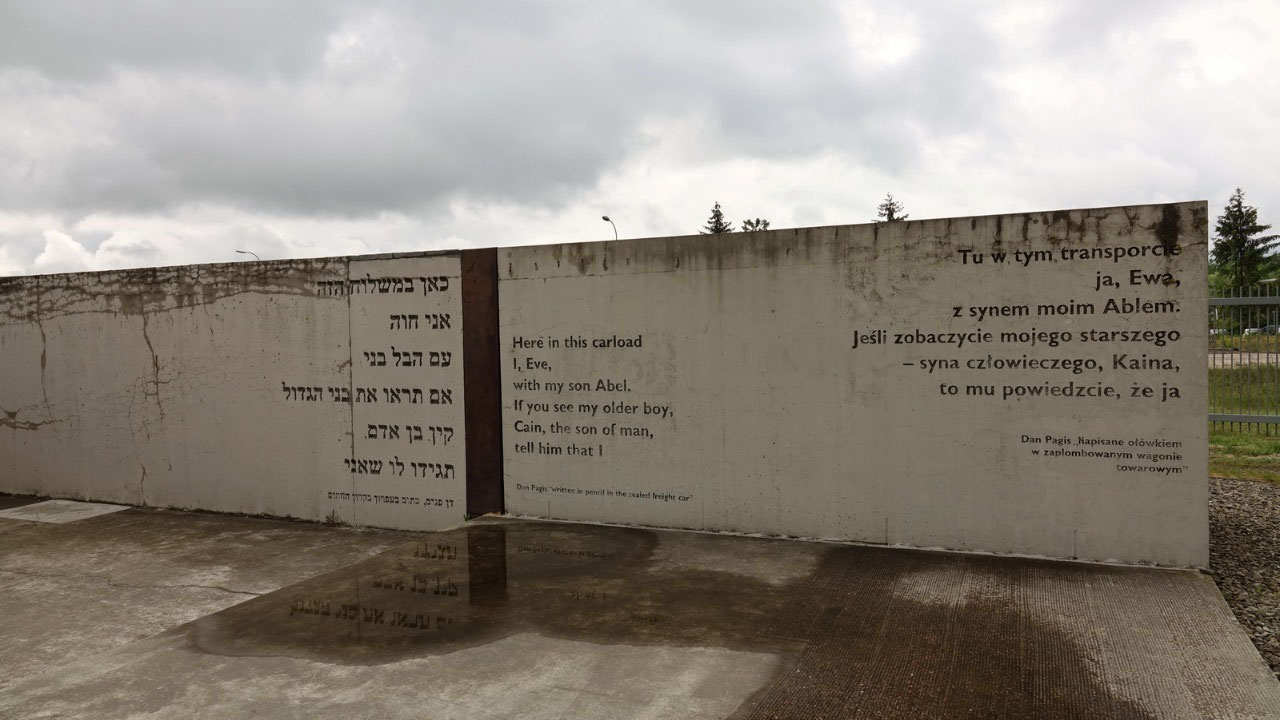 כאן במשלוח הזה
אני חוה
עם הבל בני
אם תראו את בני הגדול
קין בן אדם
תגידו לו שאני
דן פגיס, כתוב בעפרון בקרון החתום
Here in this carload
I, Eve,
with my son Abel.
If you see my older boy,
Cain, the son of man,
tell him that I
Dan Pagis 'written in pencil in the sealed freight car'
Tu w tym transporcie
ja, Ewa,
z synem moim Ablem.
Jeśli zobaczycie mojego starszego
– syna człowieczego, Kaina,
to mu powiedzcie, że ja
Dan Pagis „Napisane ołówkiem
w zaplombowanym wagonie
towarowym”